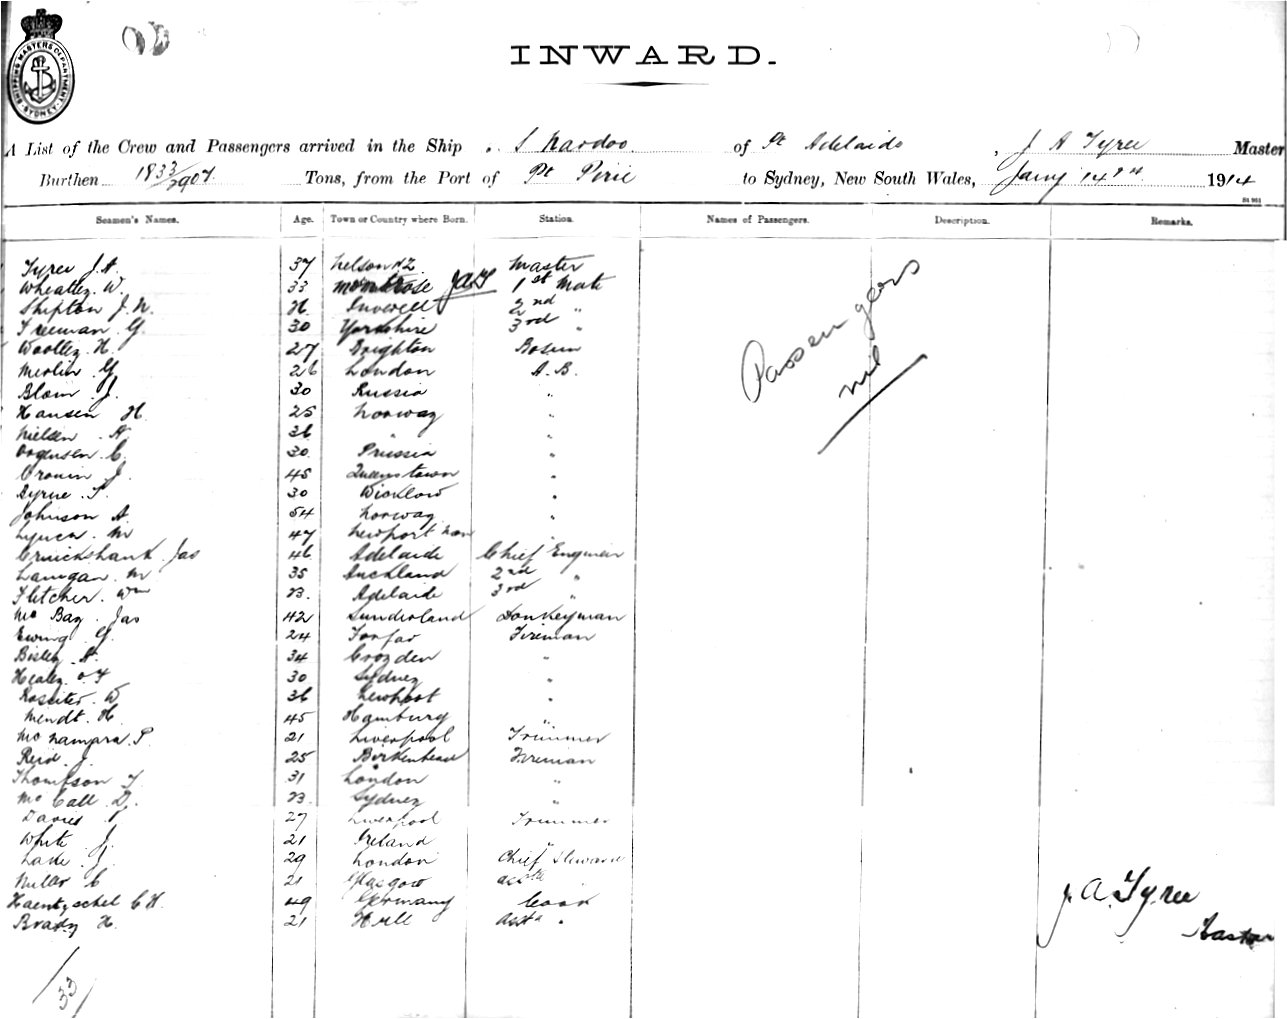 SHIPPING MASTERS DEPARTMENT SYDNEY
INWARD.
A List of the Crew and Passengers arrived in the Ship S Nardoo of Pt Adelaide, J A Tyree Master
Burthen 1833/2907 Tons, from the Port of Pt Pirie to Sydney, New South Wales, Jany 14th 1914
Seamen's Names. Age. Town or Country where Born. Station. Names of Passengers. Description. Remarks.
Tyree J.A. 37 Nelson N.Z. Master
Wheatley W. 33 Montrose JAT 1st Mate
Shipton J.N. Inverell 2nd "
Freeman G. 30 Yorkshire 3rd "
Woolley H. 27 Brighton Bosun
Merlin G 26 London A.B.
Blom J. 30 Russia "
Hansen H. 25 Norway "
Nielsen A 36 " "
C. 30 Prussia "
Cronin J. 45 Queenstown "
Byrne T. 30 Wicklow "
Johnson A. 54 Norway "
Lynch M 47 Newport Mon "
Cruickshank Jas 46 Adelaide Chief Engineer
Lanigan M 35 Auckland 2nd "
Fletcher Wm 23. Adelaide 3rd "
Mc Bay Jas 42 Sunderland Donkeyman
Ewing G. 24 Forfar Fireman
Bisley A. 34 Croyden "
Healey 30 Sydney "
Rossiter W 36 Newport "
Mendt H. 45 Hamburg "
McNamara P. 21 Liverpool Trimmer
Reid J. 25 Birkenhead Fireman
Thompson T. 31 London "
Mc Call D. 23. Sydney "
Davies 27 Liverpool Trimmer
White J. 21 Ireland "
Lake J. 29 London Chief Steward
Millar C 21 Glasgow Asst
Haentzschel C H. 49 Germany Cook
Brady H. 21 Hull Asst "
Passengers
nil
J. A. Tyree
Master
33